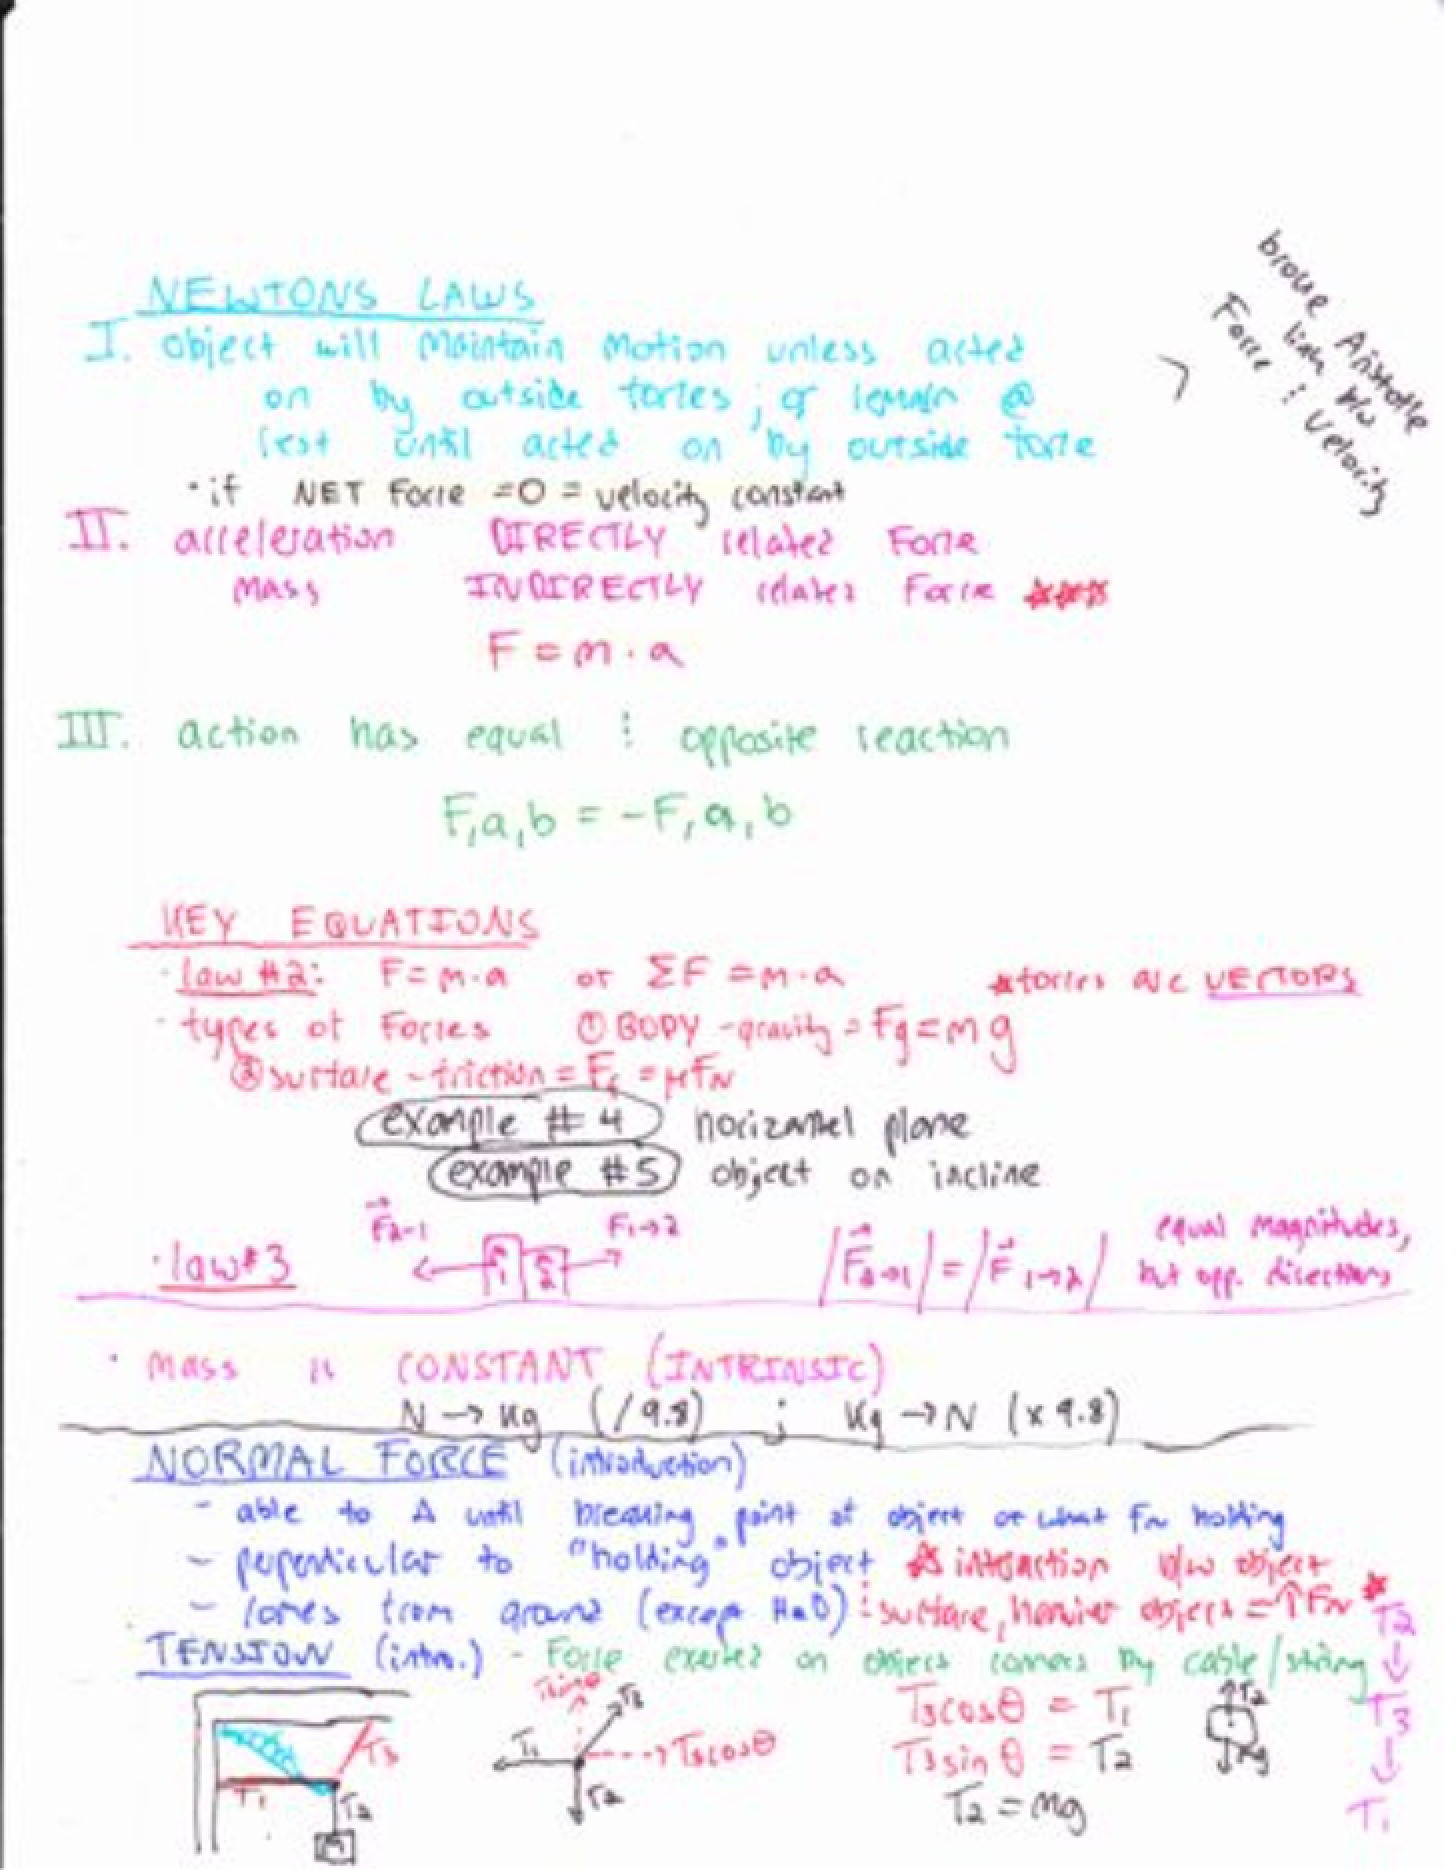 NEWTONS LAWS
I. object will maintain motion unless acted
on by outside forces; or remain @
rest until acted on by outside force
broke Aristotle
link b/w
Force & Velocity
• if NET Force = 0 = velocity constant
II. acceleration DIRECTLY relates Force
mass INDIRECTLY relates Force
F = m · a
III. action has equal & opposite reaction
F,a,b = -F,a,b
KEY EQUATIONS
· law #2: F = m·a or ΣF = m·a *forces are VECTORS
· types of Forces ① BODY - gravity = Fg = mg
② surface - friction = Ff = μFN
example #4 horizantel plane
example #5 object on incline
F2-1 F1→2
· law #3 1 2 |F2→1| = |F1→2| equal magnitudes,
but opp. directions
· mass is CONSTANT (INTRINSIC)
N → Kg (/9.8) ; Kg → N (x 9.8)
NORMAL FORCE (introduction)
- able to Δ until breaking point of object or what FN holding
- perpendicular to "holding" object ☆ interaction b/w object
- comes from ground (except H2O) & surface, heavier object = ↑FN *
TENSION (intro.) - Force exerted on object by cable/string
T2
↓
T3
↓
T1
T1 T3 T2 M
T3sinθ T3 T1 T3cosθ T2
T3cosθ = T1
T3sinθ = T2
T2 = mg
T2 mg